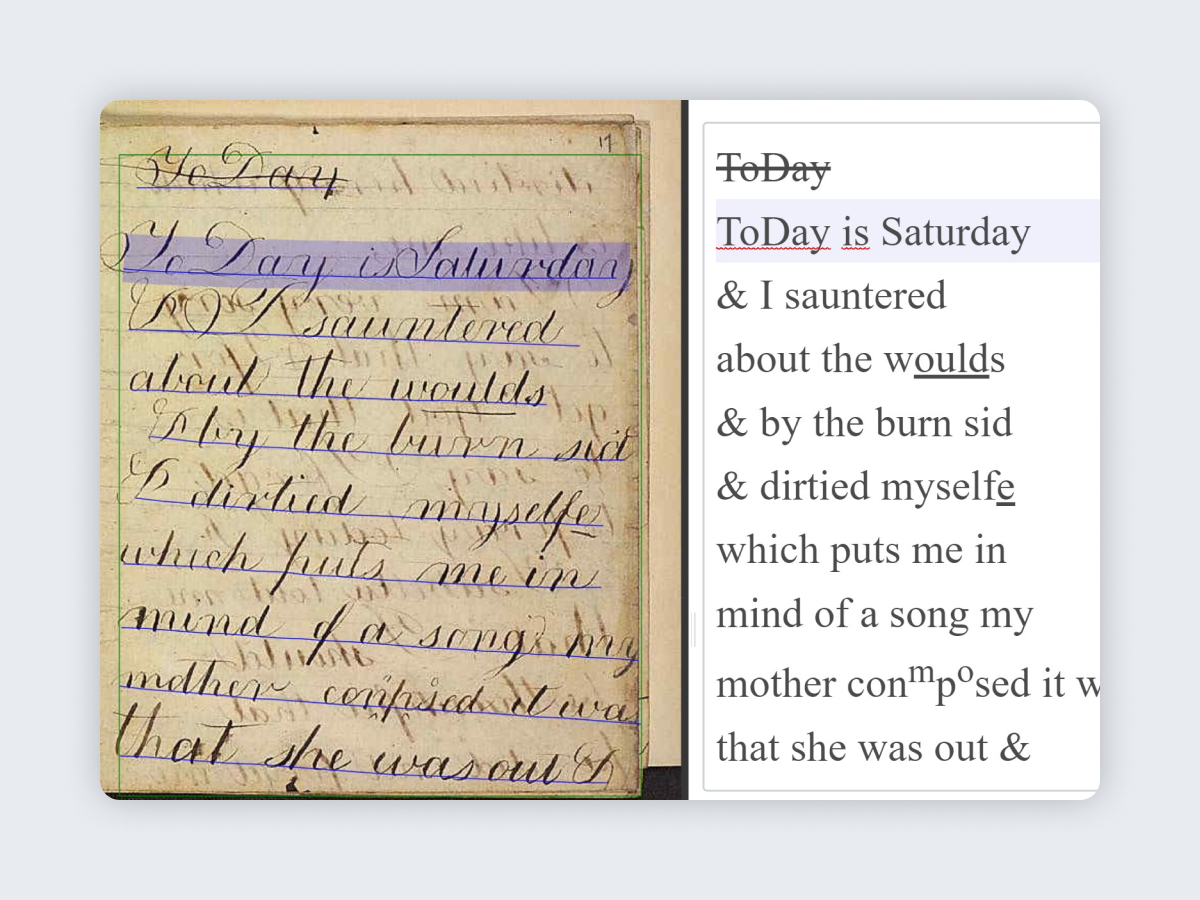 17
ToDay
ToDay is Saturday
& I sauntered
about the woulds
& by the burn sid
& dirtied myselfe
which puts me in
mind of a song my
mother conmposed it was
that she was out &
ToDay
ToDay is Saturday
& I sauntered
about the woulds
& by the burn sid
& dirtied myselfe
which puts me in
mind of a song my
mother conmposed it w
that she was out &